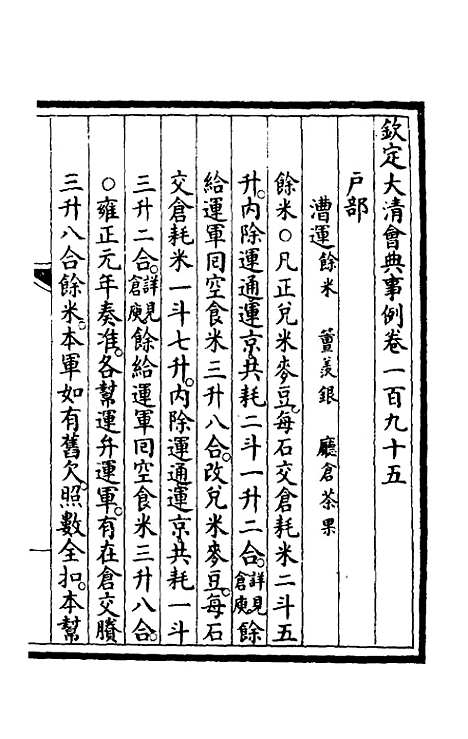 欽定大清會典事例卷一百九十五
戶部
漕運餘米 簟羨銀 廳倉茶果
餘米○凡正兌米麥豆。每石交倉耗米二斗五
升。內除運通運京。共耗二斗一升二合。詳見倉庾餘
給運軍囘空食米三升八合。改兌米麥豆。每石
交倉耗米一斗七升。內除運通運京。共耗一斗
三升二合。詳見倉庾餘給運軍囘空食米三升八合。
○雍正元年奏准。各幫運弁運軍。有在倉交賸
三升八合餘米。本軍如有舊欠。照數全扣。本幫
一